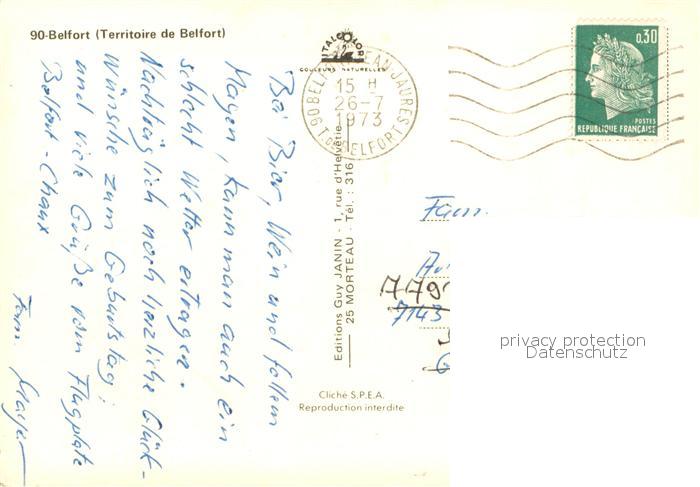 90-Belfort (Territoire de Belfort)
ITALCOLOR
COULEURS NATURELLES
90 BELFORT JEAN JAURES
15 H
26-7
1973
T. DE BELFORT
0,30
POSTES
REPUBLIQUE FRANÇAISE
Bei Bier, Wein und follem
Magen, kann man auch ein
schlecht Wetter ertragen.
Nachträglich noch herzliche Glück-
wünsche zum Geburtstag;
und viele Grüße vom Flugplatz
Belfort-Chaux
Fam. Mayer
Editions Guy JANIN - 1, rue d'Helvétie
25 MORTEAU - Tél. : 316
Fam.
779
7143
Cliché S.P.E.A.
Reproduction interdite
privacy protection
Datenschutz